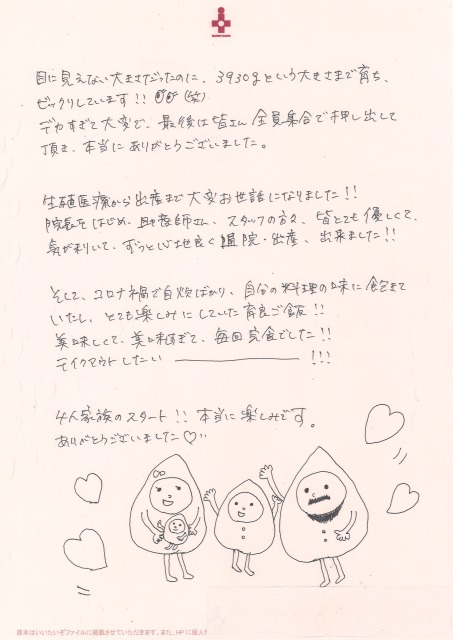 目に見えない大きさだったのに、3930gという大きさまで育ち、
ビックリしています!! (笑)
デカすぎて大変で、最後は皆さん全員集合で押し出して
頂き、本当にありがとうございました。
生殖医療から出産まで大変お世話になりました!!
院長をはじめ、助産師さん、スタッフの方々、皆とても優しくて、
気が利いて、ずっと心地良く 院・出産、出来ました!!
そして、コロナ禍で自炊ばかり、自分の料理の味に飽きて
いたし、とても楽しみにしていた 育良ご飯!!
美味しくて、美味すぎて、毎回完食でした!!
テイクアウトしたい ーーーーー !!!
4人家族のスタート!! 本当に楽しみです。
ありがとうございました♡
原本はいいたいぞファイルに掲載させていただきます。また、HPに個人